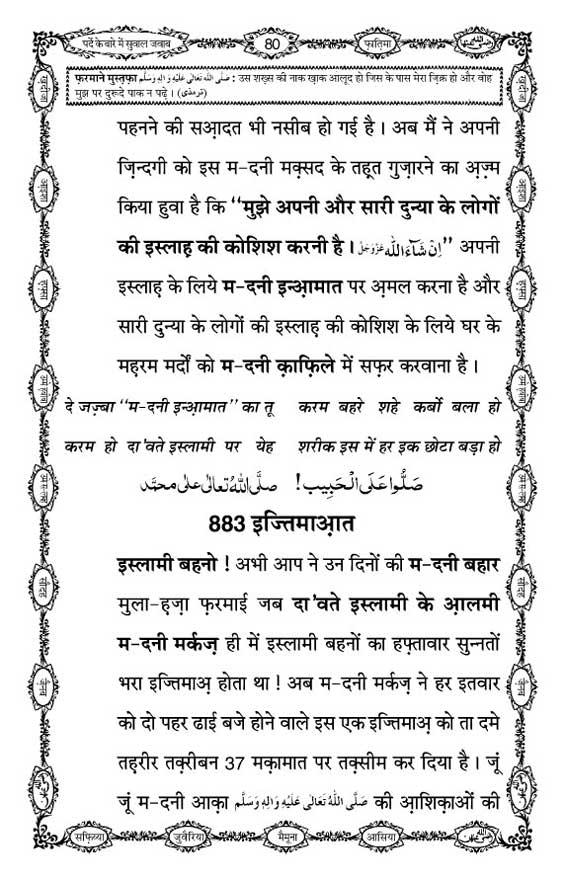 पर्दे के बारे में सुवाल जवाब
80
फ़ातिमा
फ़रमाने मुस्तफ़ा صَلَّى اللهُ تَعَالٰى عَلَيْهِ وَاٰلِهٖ وَسَلَّم : उस शख़्स की नाक ख़ाक आलूद हो जिस के पास मेरा ज़िक्र हो और वोह
मुझ पर दुरूदे पाक न पढ़े । (ترمذی)
पहनने की सआ़दत भी नसीब हो गई है । अब मैं ने अपनी
ज़िन्दगी को इस म-दनी मक़्सद के तह़त गुज़ारने का अ़ज़्म
किया हुवा है कि ‘‘मुझे अपनी और सारी दुन्या के लोगों
की इस्लाह़ की कोशिश करनी है । اِنْ شَآءَ اللّٰه عَزَّوَجَلَّ’’ अपनी
इस्लाह़ के लिये म-दनी इन्आ़मात पर अ़मल करना है और
सारी दुन्या के लोगों की इस्लाह़ की कोशिश के लिये घर के
मह़रम मर्दों को म-दनी क़ाफ़िले में सफ़र करवाना है ।
दे जज़्बा ‘‘म-दनी इन्आ़मात’’ का तू करम बहरे शहे कर्बो बला हो
करम हो दा'वते इस्लामी पर येह शरीक इस में हर इक छोटा बड़ा हो
صَلُّوا عَلَى الْحَبِيْب! صلَّى اللهُ تَعَالٰى عَلٰى محمَّد
883 इज्तिमाआ़त
इस्लामी बहनो ! अभी आप ने उन दिनों की म-दनी बहार
मुला-ह़ज़ा फ़रमाई जब दा'वते इस्लामी के आ़लमी
म-दनी मर्कज़ ही में इस्लामी बहनों का हफ़्तावार सुन्नतों
भरा इज्तिमाअ़ होता था ! अब म-दनी मर्कज़ ने हर इतवार
को दो पहर ढाई बजे होने वाले इस एक इज्तिमाअ़ को ता दमे
तह़रीर तक़्रीबन 37 मक़ामात पर तक़्सीम कर दिया है । जूं
जूं म-दनी आक़ा صَلَّى اللهُ تَعَالٰى عَلَيْهِ وَاٰلِهٖ وَسَلَّم की आ़शिक़ाओं की
सफ़िय्या
जुवैरिया
मैमूना
आसिया